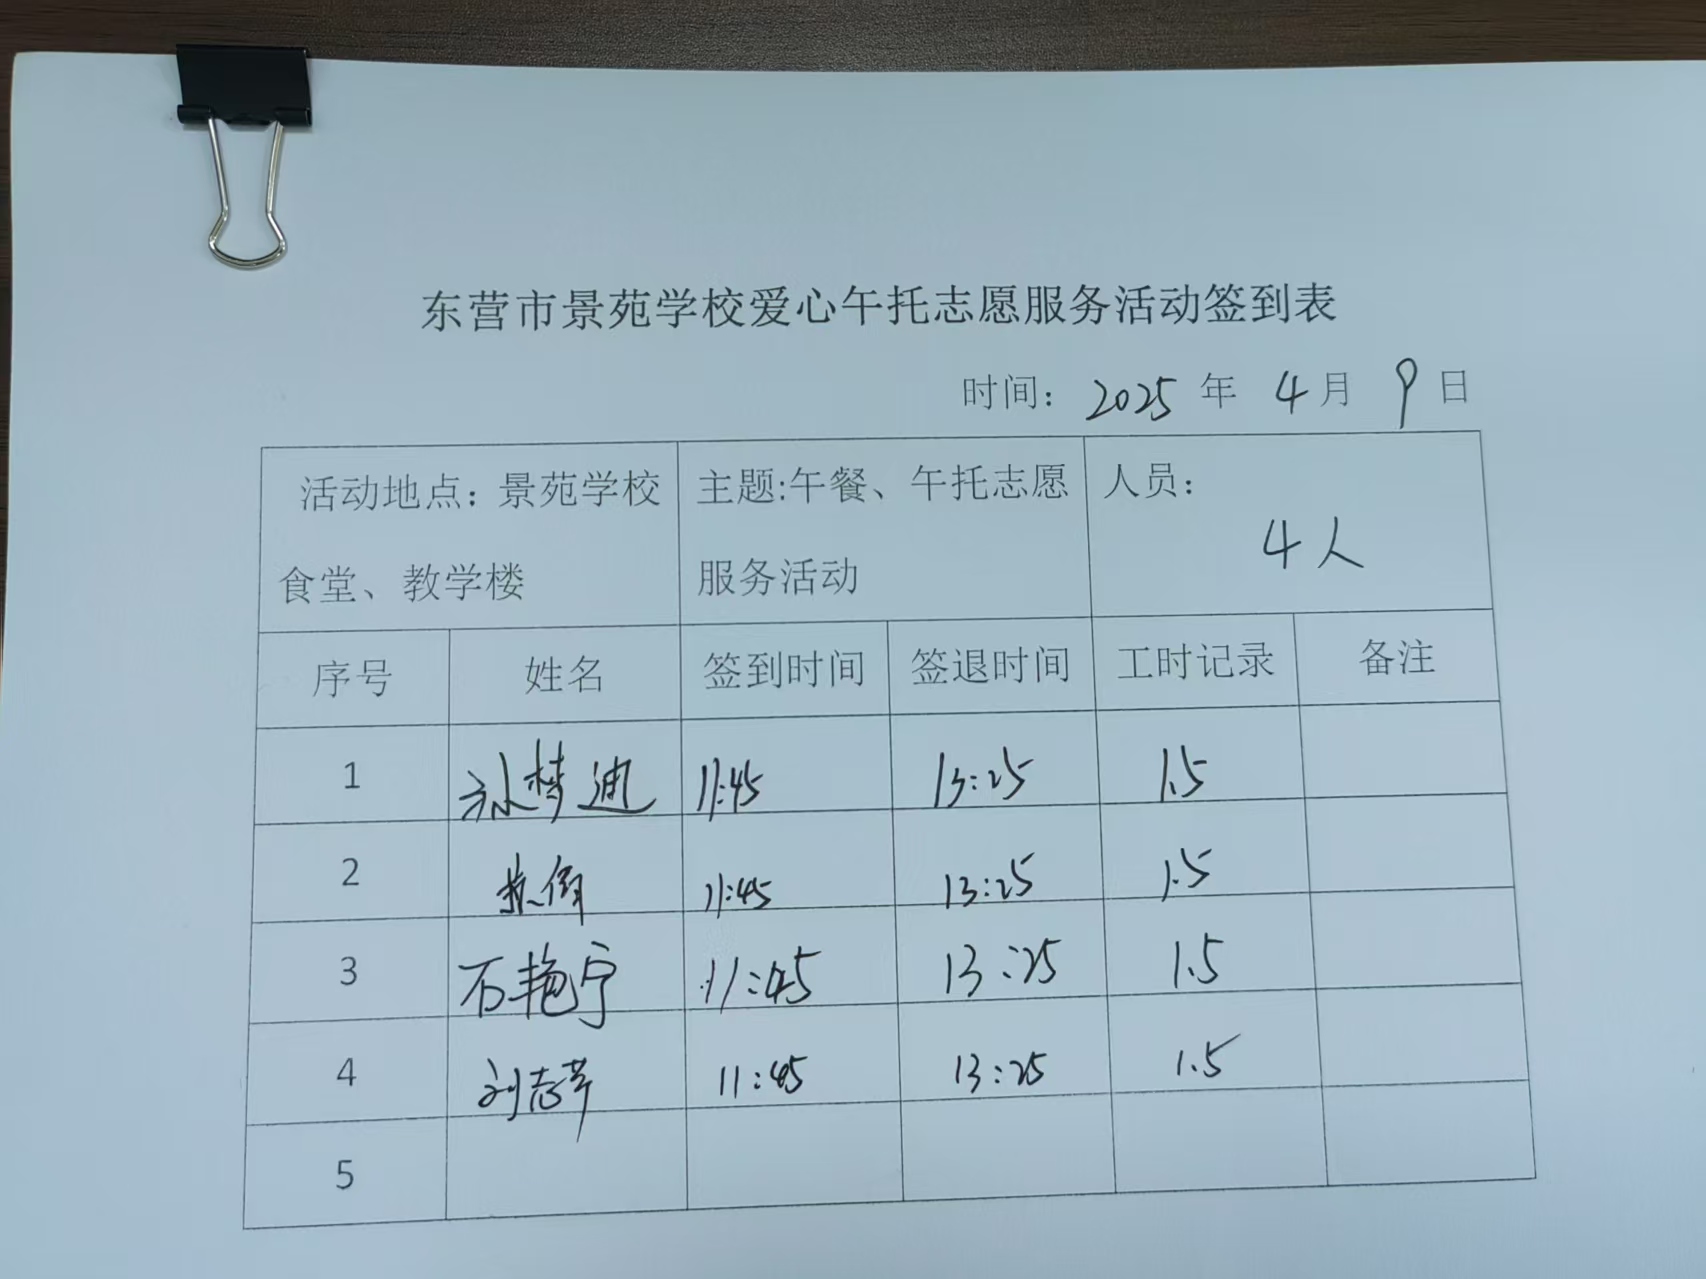 东营市景苑学校爱心午托志愿服务活动签到表
时间： 2025 年 4 月 9 日
活动地点：景苑学校食堂、教学楼 主题:午餐、午托志愿服务活动 人员： 4人
序号 姓名 签到时间 签退时间 工时记录 备注
1 孙梦迪 11:45 13:25 1.5
2 11:45 13:25 1.5
3 石艳宁 11:45 13:25 1.5
4 刘志苹 11:45 13:25 1.5
5